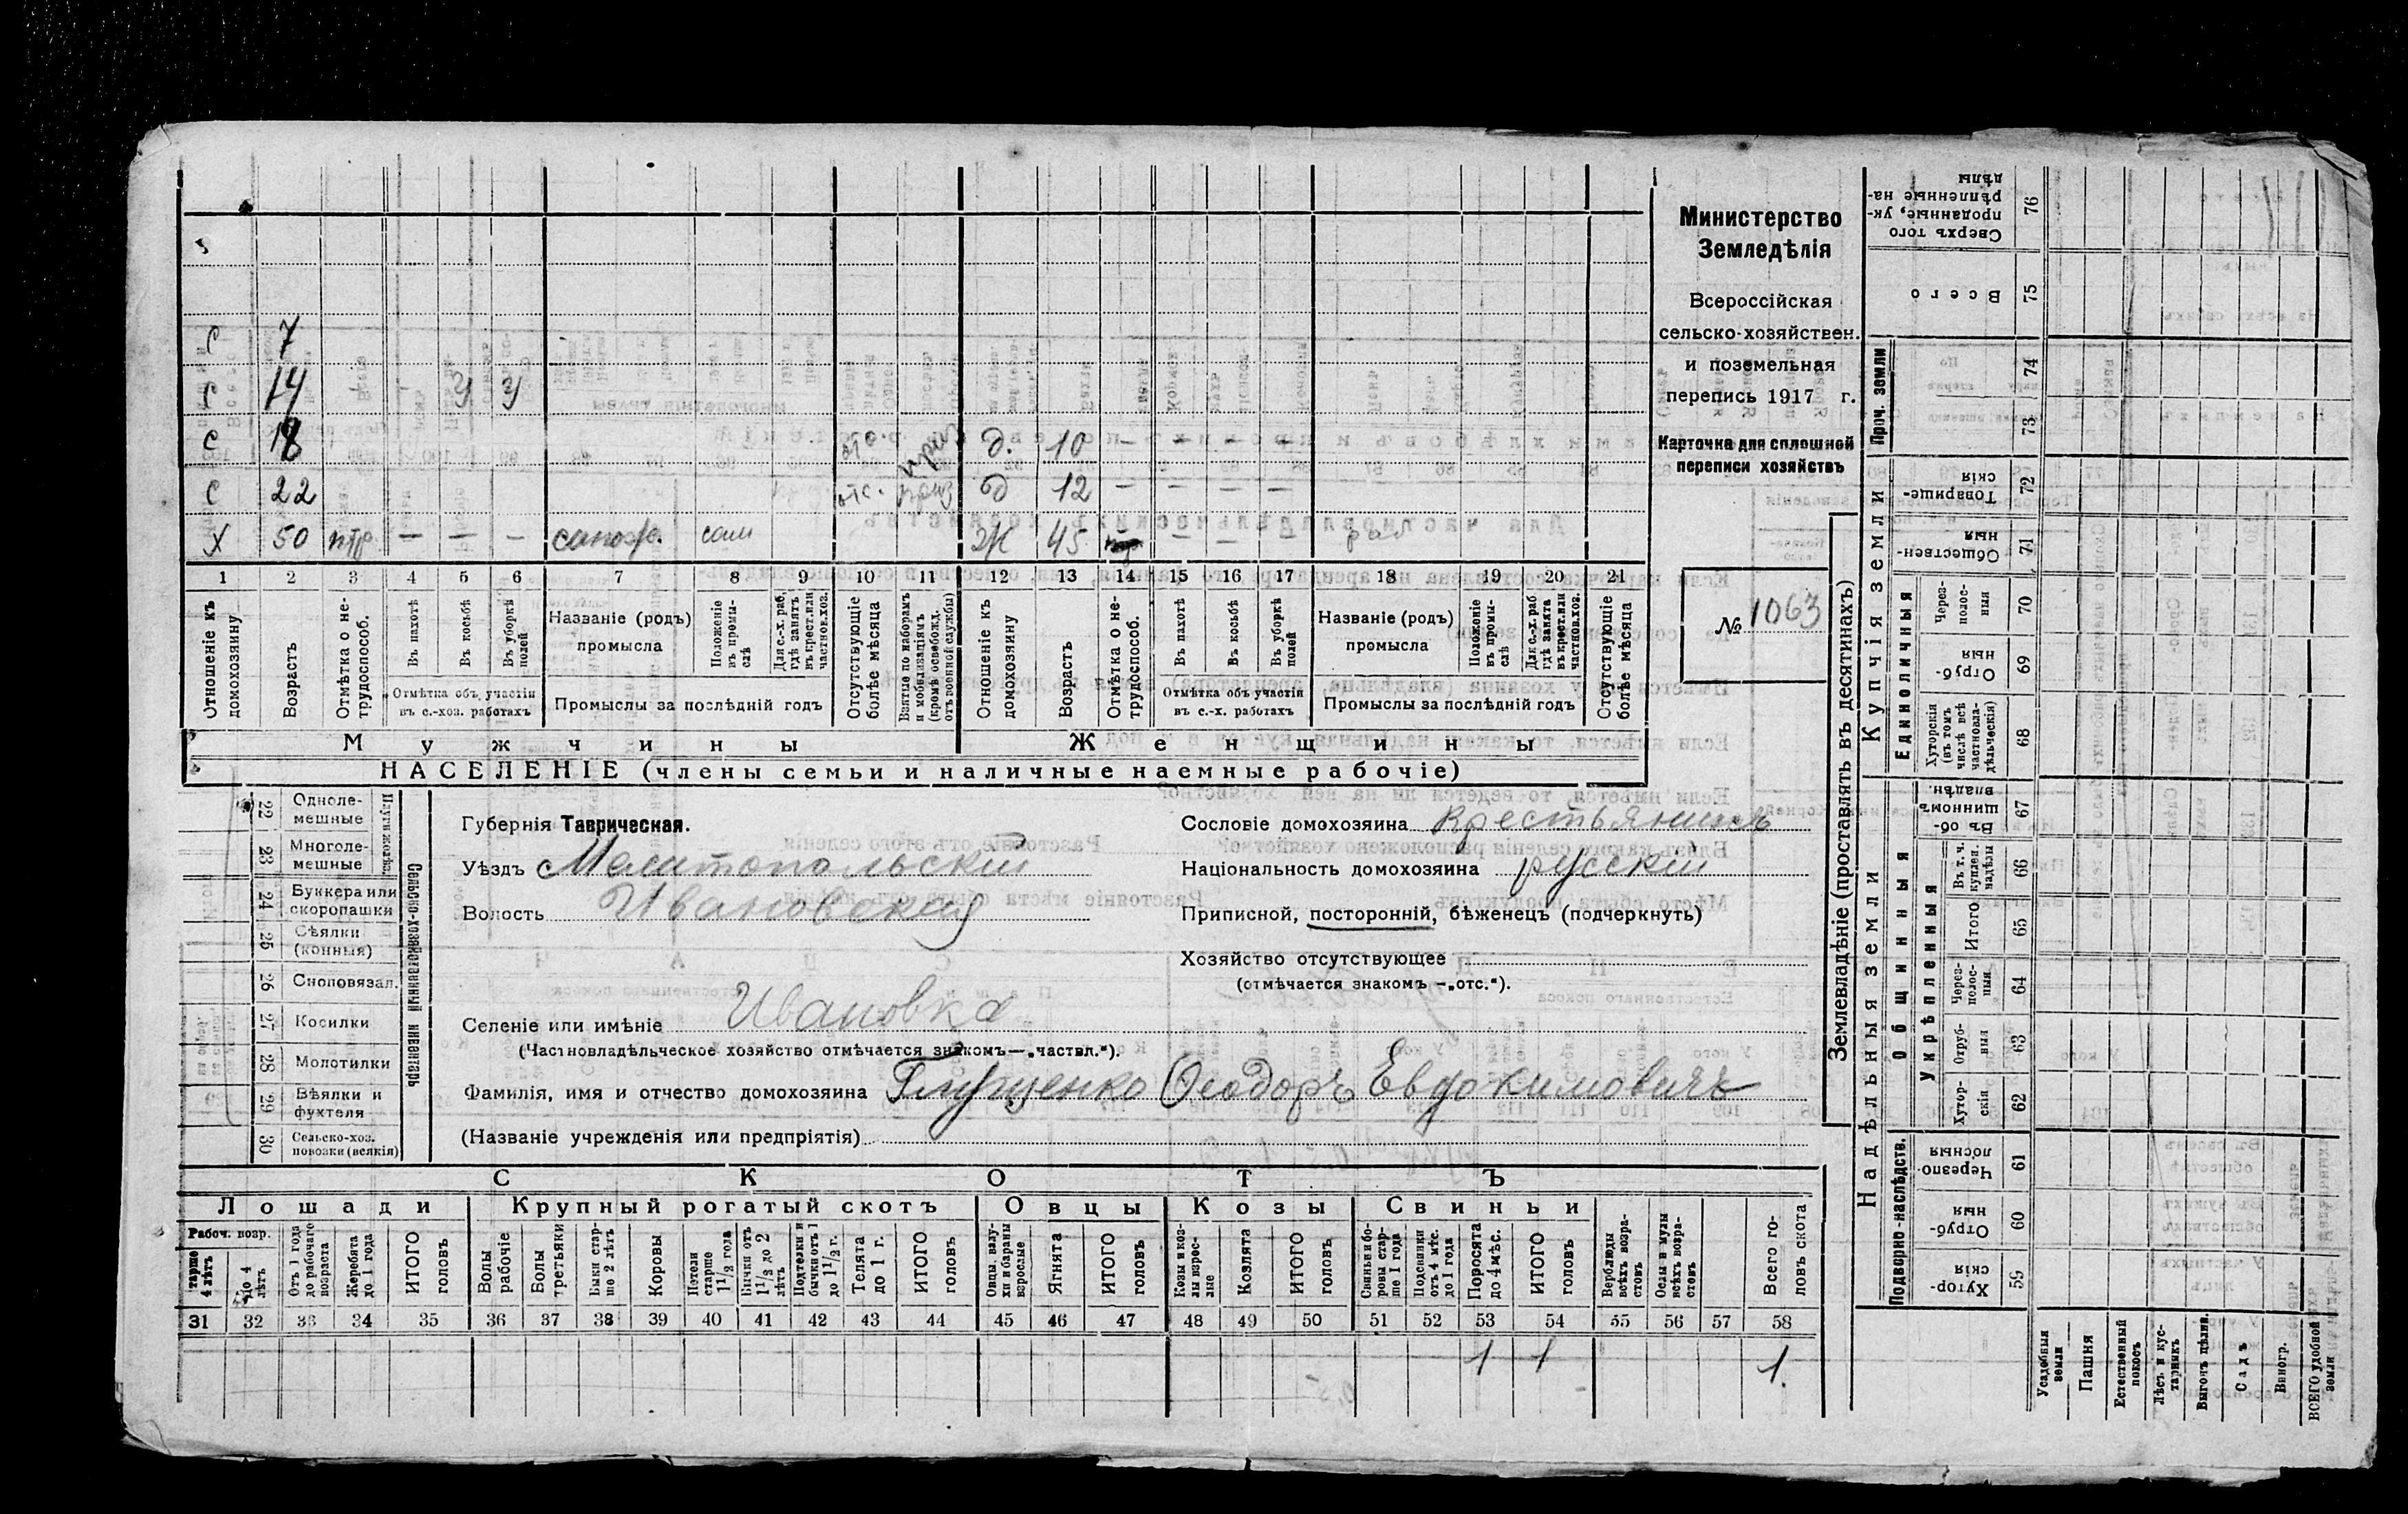 Министерство
Земледѣлія
Всероссійская
сельско-хозяйствен.
и поземельная
перепись 1917 г.
Карточка для сплошной
переписи хозяйствъ
№ 1063
с 7
с 14 У У
с 18 отс. д. 10 — — — —
с 22 отс. д 12 — — — —
х 50 — — — сам ж 45 — — —
1 2 3 4 5 6 7 8 9 10 11 12 13 14 15 16 17 18 19 20 21
Отношеніе къ домохозяину
Возрастъ
Отмѣтка о нетрудоспособ.
Въ пахотѣ
Въ косьбѣ
Въ уборкѣ полей
Отмѣтка объ участіи въ с.-хоз. работахъ
Названіе (родъ) промысла
Положеніе въ промыслѣ
Для с.-х. раб. гдѣ занятъ въ крест. или частнов. хоз.
Промыслы за послѣдній годъ
Отсутствующіе болѣе мѣсяца
Взятые по наборамъ и мобилизаціямъ (кромѣ освобожд. отъ военной службы)
Отношеніе къ домохозяину
Возрастъ
Отмѣтка о нетрудоспособ.
Въ пахотѣ
Въ косьбѣ
Въ уборкѣ полей
Отмѣтка объ участіи въ с.-х. работахъ
Названіе (родъ) промысла
Положеніе въ промыслѣ
Для с.-х. раб гдѣ занята въ крест. или частнов. хоз.
Промыслы за послѣдній годъ
Отсутствующіе болѣе мѣсяца
Мужчины Женщины
НАСЕЛЕНІЕ (члены семьи и наличные наемные рабочіе)
Сельско-хозяйственный инвентарь
22 Однолемешные
23 Многолемешные
24 Буккера или скоропашки
25 Сѣялки (конныя)
26 Сноповязал.
27 Косилки
28 Молотилки
29 Вѣялки и фухтеля
30 Сельско-хоз. повозки (всякія)
Губернія Таврическая.
Уѣздъ Мелитопольскій
Волость Ивановская
Селеніе или имѣніе Ивановка
(Частновладѣльческое хозяйство отмѣчается знакомъ—„частвл.“).
Фамилія, имя и отчество домохозяина Глущенко Ѳеодоръ Евдокимовичъ
(Названіе учрежденія или предпріятія)
Сословіе домохозяина Крестьянинъ
Національность домохозяина русскій
Приписной, посторонній, бѣженецъ (подчеркнуть)
Хозяйство отсутствующее
(отмѣчается знакомъ —„отс.“).
СКОТЪ
Лошади Крупный рогатый скотъ Овцы Козы Свиньи
Рабоч. возр.
тарше 4 лѣтъ
до 4 лѣтъ
Отъ 1 года до рабочаго возраста
Жеребята до 1 года
ИТОГО головъ
Волы рабочіе
Волы третьяки
Быки старше 2 лѣтъ
Коровы
Нетели старше 1½ года
Бычки отъ 1½ до 2 лѣтъ
Подтелки и бычки отъ 1 до 1½ г.
Телята до 1 г.
ИТОГО головъ
Овцы, валухи и бараны взрослые
Ягнята
ИТОГО головъ
Козы и козлы взрослые
Козлята
ИТОГО головъ
Свиньи и боровы старше 1 года
Подсвинки отъ 4 мѣс. до 1 года
Поросята до 4 мѣс.
ИТОГО головъ
Верблюды всѣхъ возрастовъ
Ослы и мулы всѣхъ возрастовъ
Всего головъ скота
31 32 33 34 35 36 37 38 39 40 41 42 43 44 45 46 47 48 49 50 51 52 53 54 55 56 57 58
1 1 1.
Землевладѣніе (проставлять въ десятинахъ)
Надѣльныя земли Купчія земли Проч. земли
Подворно-наслѣдств.
Общинныя
Укрѣпленныя
Единоличныя
Хуторскія 59
Отрубныя 60
Черезполосныя 61
Хуторскія 62
Отрубныя 63
Черезполосныя 64
Итого 65
Въ т. ч. куплен. надѣлы 66
Въ общинномъ владѣн. 67
Хуторскія (въ томъ числѣ всѣ частновладѣльческія) 68
Отрубныя 69
Черезполосныя 70
Общественныя 71
Товарищескія 72
73
74
Всего 75
Сверхъ того проданные, укрѣпленные надѣлы 76
Усадебныя земли
Пашня
Естественный покосъ
Лѣсъ и кустарникъ
Выгонъ цѣлин.
Садъ
Виногр.
ВСЕГО удобной земли